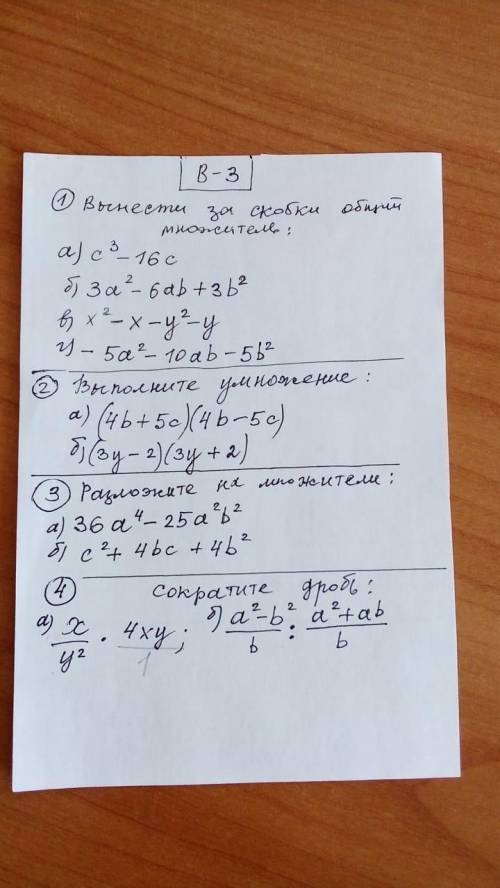 В-3
① Вынести за скобки общий
множитель:
а) c³ - 16c
б) 3a² - 6ab + 3b²
в) x² - x - y² - y
г) - 5a² - 10ab - 5b²
② Выполните умножение:
а) (4b + 5c)(4b - 5c)
б) (3y - 2)(3y + 2)
③ Разложите на множители:
а) 36a⁴ - 25a²b²
б) c² + 4bc + 4b²
④ сократите дробь:
а) x/y² · 4xy/1; б) a² - b²/b : a² + ab/b